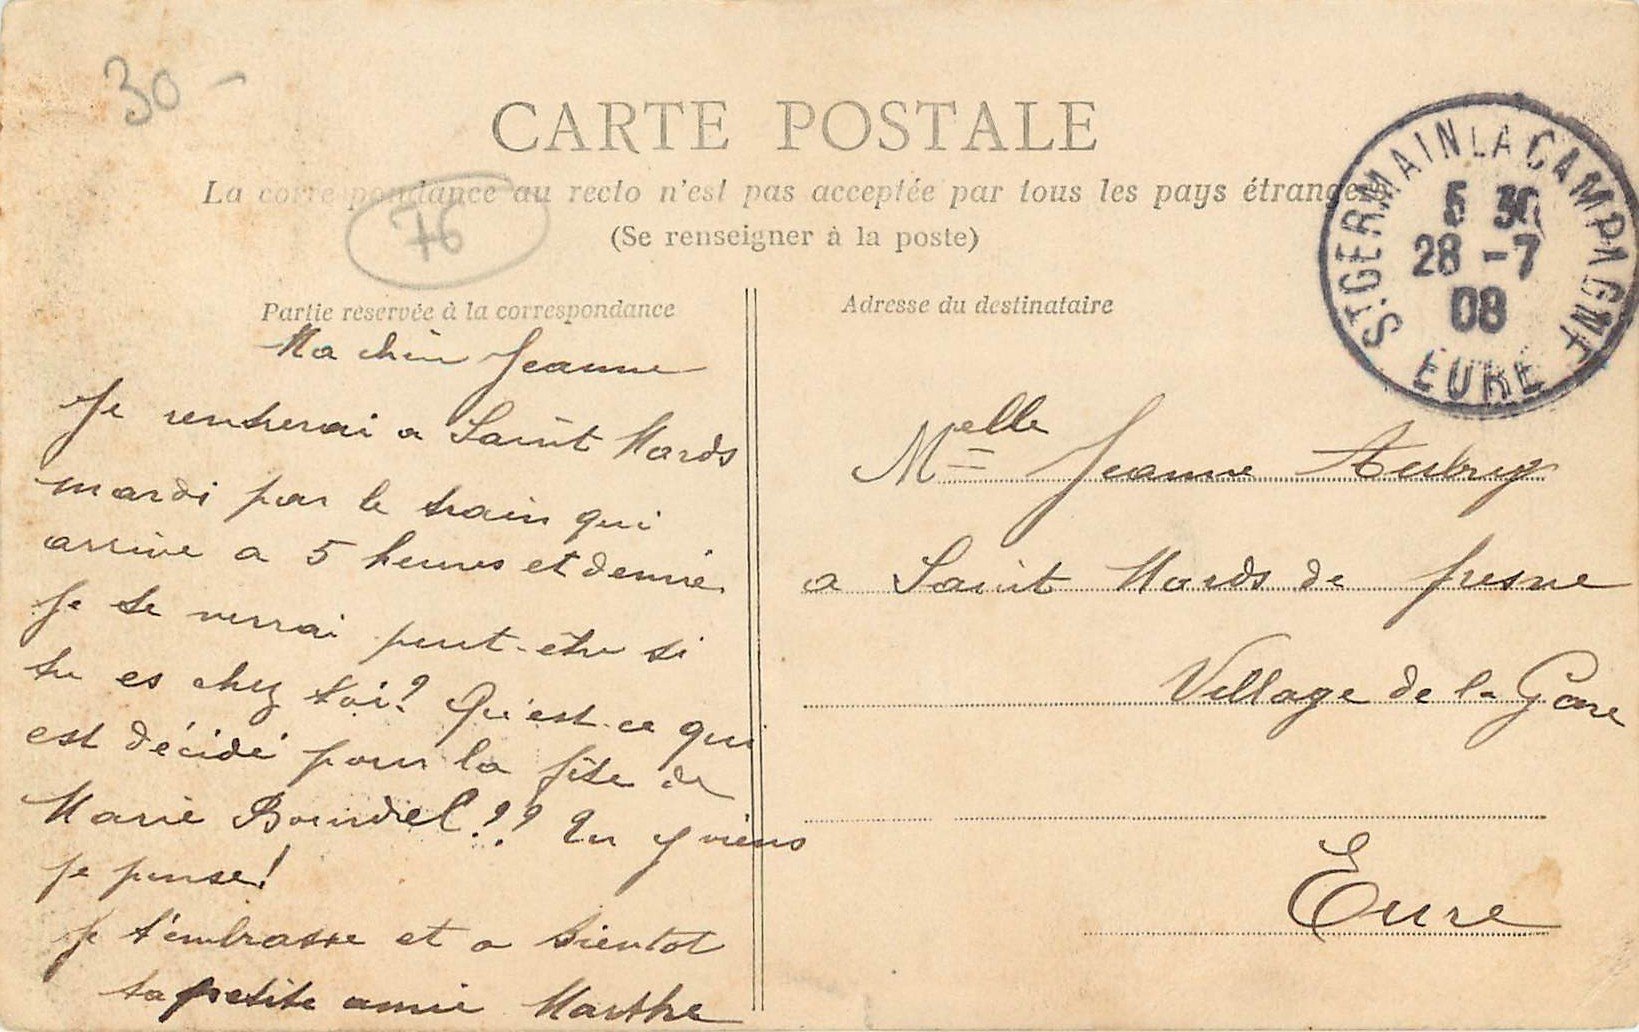 30 -
CARTE POSTALE
La correspondance au recto n'est pas acceptée par tous les pays étrangers
76
(Se renseigner à la poste)
Partie réservée à la correspondance
Ma chère Jeanne
Je rentrerai a Saint Mards
mardi par le train qui
arrive a 5 heures et demie
Je te verrai peut-être si
tu es chez toi? Qu'est-ce qui
est décidé pour la fête de
Marie Bourdel?? Tu y viens
je pense!
Je t'embrasse et a bientot
ta petite amie Marthe
Adresse du destinataire
Melle Jeanne Aubry
a Saint Mards de fresne
Village de la Gare
Eure
ST GERMAIN LA CAMPAGNE
5 30
28 -7
08
EURE